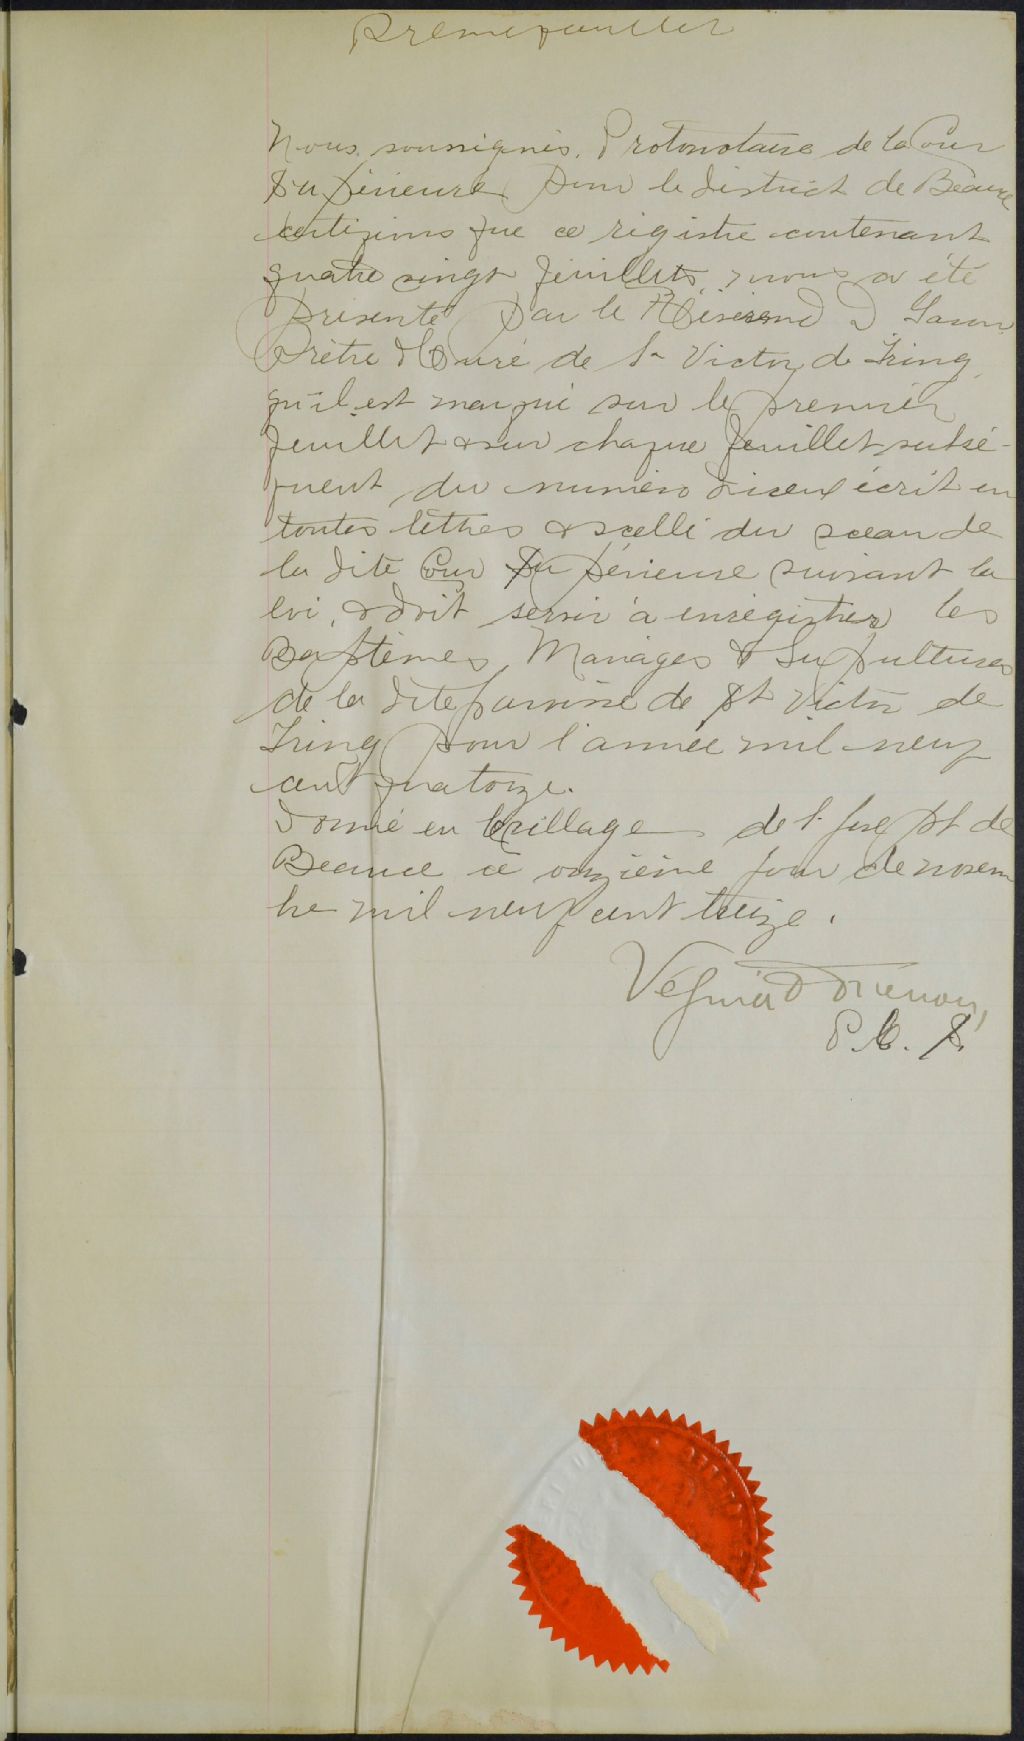 Premier feuillet
Nous, soussignés, Protonotaire de la Cour
Supérieure pour le district de Beauce
certifions que ce régistre contenant
quatre vingt feuillets, nous a été
présenté par le Révérend D
Prêtre & Curé de St Victor de Tring,
qu'il est marqué sur le premier
feuillet & sur chaque feuillet subsé-
quent du numéro d'iceux écrit en
toutes lettres & scellé du sceau de
la dite Cour Supérieure suivant la
loi, & doit servir à enrégistrer les
Baptêmes, Mariages & Sépultures
de la dite paroisse de St Victor de
Tring pour l'année mil neuf
cent quatorze.
Donné en le village de St Joseph de
Beauce ce onzième jour de novem
bre mil neuf cent treize.
P. C. S.